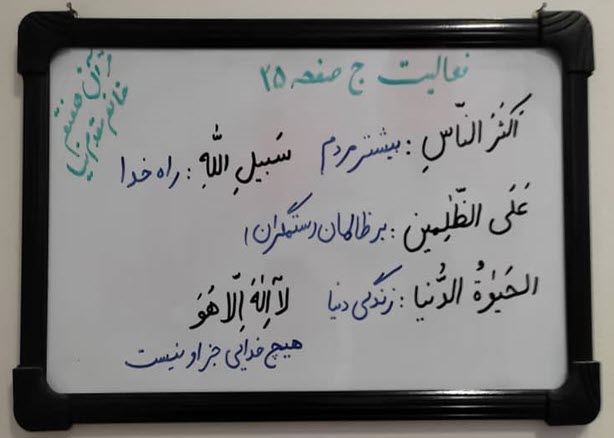 فعالیت ج صفحه ۲۵
قرآن هفتم
خانم
اَکثَرَ النّاسِ : بیشتر مردم
سَبیلِ اللّٰهِ : راه خدا
عَلَی الظّٰلِمین : بر ظالمان (ستمگران)
الحَیٰوةُ الدُّنیا : زندگی دنیا
لآ اِلٰهَ اِلّا هُوَ
هیچ خدایی جز او نیست